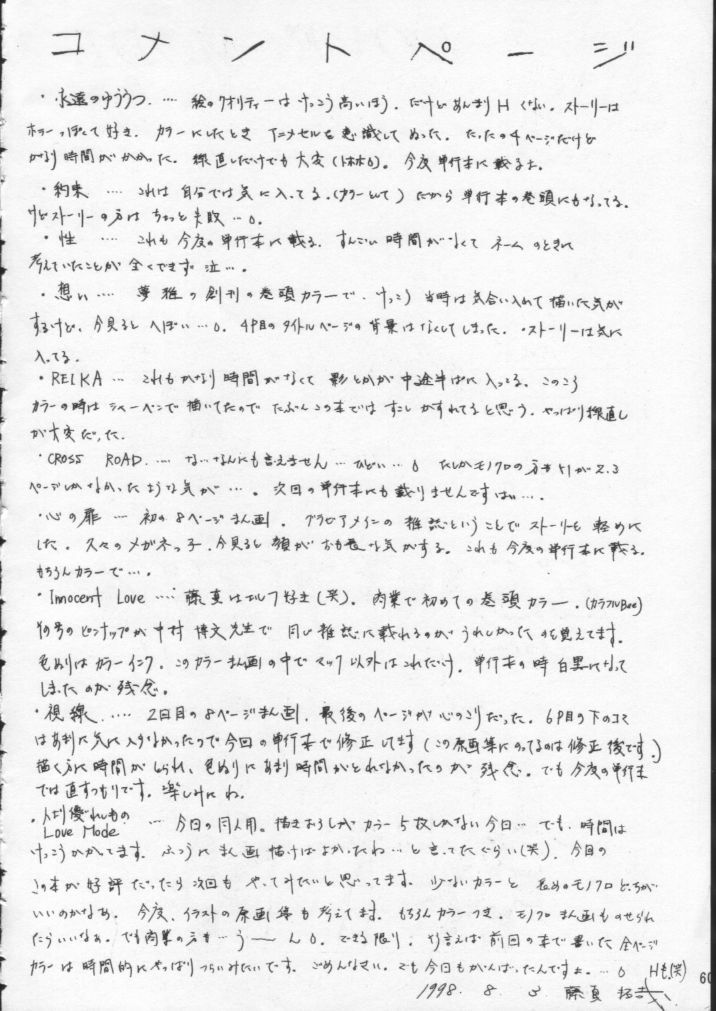 コメントページ
・永遠のゆううつ‥‥ 絵のクオリティーはけっこう高いほう。だけどあんまりHくない。ストーリーは
ホラーっぽくて好き。カラーにしたとき アニメセルを意識してぬった。たったの4ページだけど
かなり時間がかかった。線直しだけでも大変（トホホ）。今度単行本に載るよ。
・約束 ‥‥ これは自分では気に入ってる。（カラーとして）だから単行本の巻頭にもなってる。
けどストーリーの方はちょっと失敗…。
・性 ‥‥ これも今度の単行本に載る。すんごい時間がなくて ネームのときに
考えていたことが全くできず 泣…。
・想い‥‥ 夢雅の創刊の巻頭カラーで、けっこう当時は気合い入れて描いた気が
するけど、今見るとへぼい…。4P目のタイトルページの背景はなくしてしまった。・ストーリーは気に
入ってる。
・REIKA … これもかなり時間がなくて 影とかが中途半ぱに入ってる。このころ
カラーの時はシャーペンで描いてたのでたぶんこの本ではすこしかすれてると思う。やっぱり線直し
が大変だった。
・CROSS ROAD.‥‥ な…なんにも言えません…ひどい… たしかモノクロの方も 2.3
ページしかなかったような気が…。次回の単行本にも載りませんですはい…。
・心の扉 … 初の8ページまん画。グラビアメインの雑誌ということでストーリーを軽めに
した。久々のメガネっ子、今見ると顔がおも長な気がする。これも今度の単行本に載る。
もちろんカラーで…。
・Innocent Love ‥‥ 藤真はエルフ好き（笑）。肉業で初めての巻頭カラー。（カラフルBee）
その号のピンナップが中村博文先生で 同じ雑誌に載れるのがうれしかったのを覚えてます。
色ぬりはカラーインク。このカラーまん画の中でマック以外はこれだけ。単行本の時白黒になって
しまったのが残念。
・視線.‥‥ 2回目の8ページまん画。最後のページが心のこりだった。6P目の下のコマ
はあまり気に入らなかったので今回の単行本で修正してます（この原画集にのってるのは修正後です。）
描く方に時間がとられ、色ぬりにあまり時間がとれなかったのが残念。でも今度の単行本
では直すつもりです。楽しみにね。
・人より優れしもの
Love Mode … 今日の同人用。描きおろしが カラー5枚しかない今日…でも、時間は
けっこうかかてます。ふつうにまん画描けばよかったね…と言ってたぐらい（笑）。今日の
この本が好評だったら次回も やってみたいと思ってます。少ないカラーと 長めのモノクロどっちが
いいのかなあ。今度、イラストの原画集も考えてます。もちろんカラーつき。モノクロまん画ものせられ
たらいいなぁ。でも肉業の方も…う――ん。できる限り。 言えば前回の本で書いた全ページ
カラーは時間的にやっぱりつらいみたいです。ごめんなさい。でも今日もがんばったんですよ。… Hも（笑）
1998. 8. 3 藤真拓哉
60